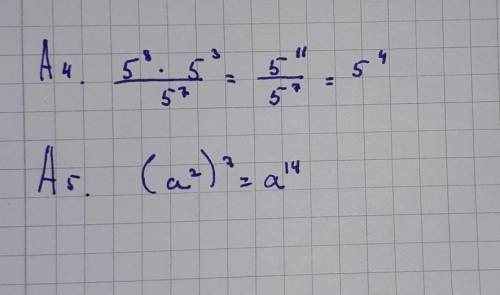 A4. (5^8 · 5^3)/5^7 = 5^11/5^7 = 5^4
A5. (a^2)^7 = a^14